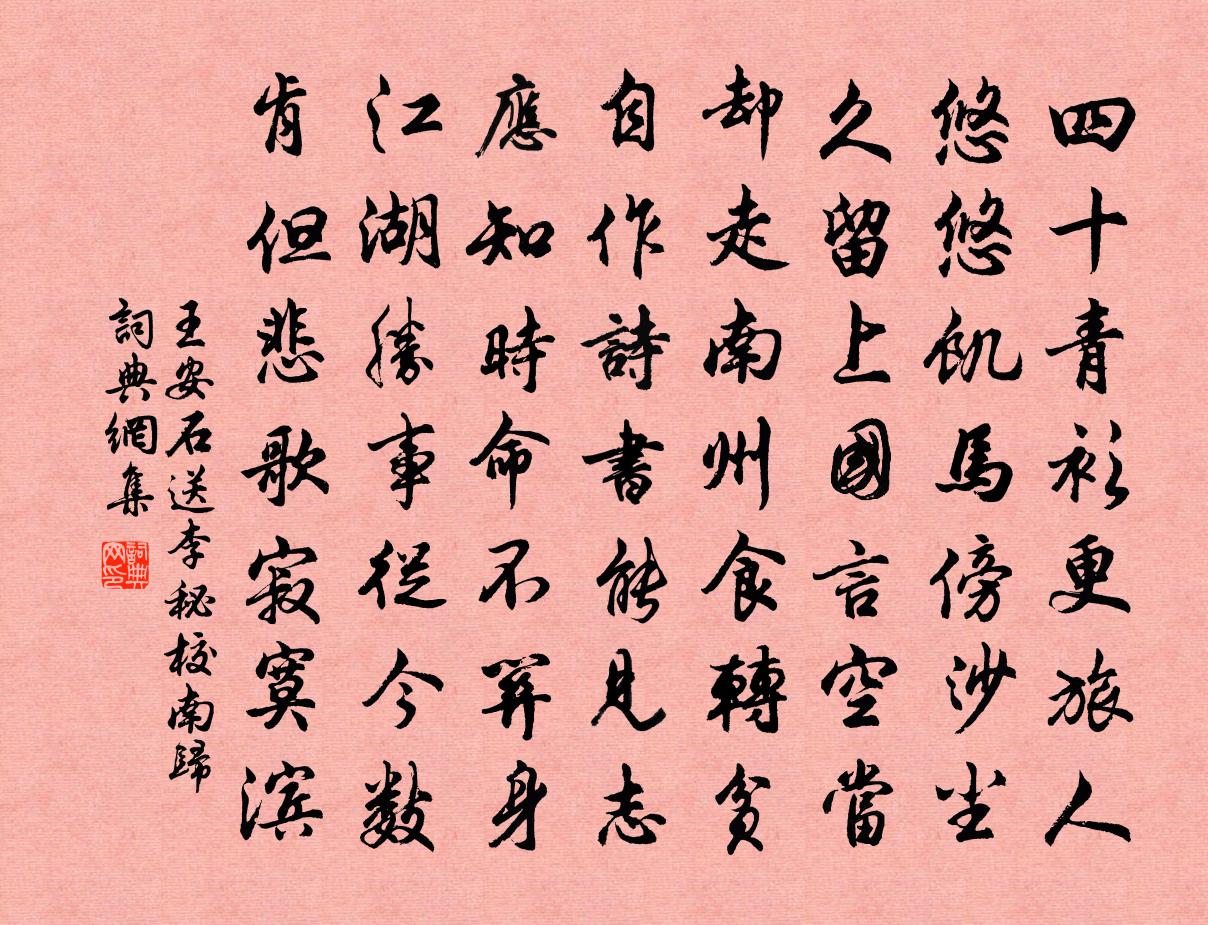 四十青衫更旅人
悠悠飢馬傍沙尘
久留上國言空當
却走南州食轉貧
自作詩書能見志
應知時命不關身
江湖勝事從今數
肯但悲歌寂寞濱
王安石送李秘校南歸
詞典網集
詞典网印